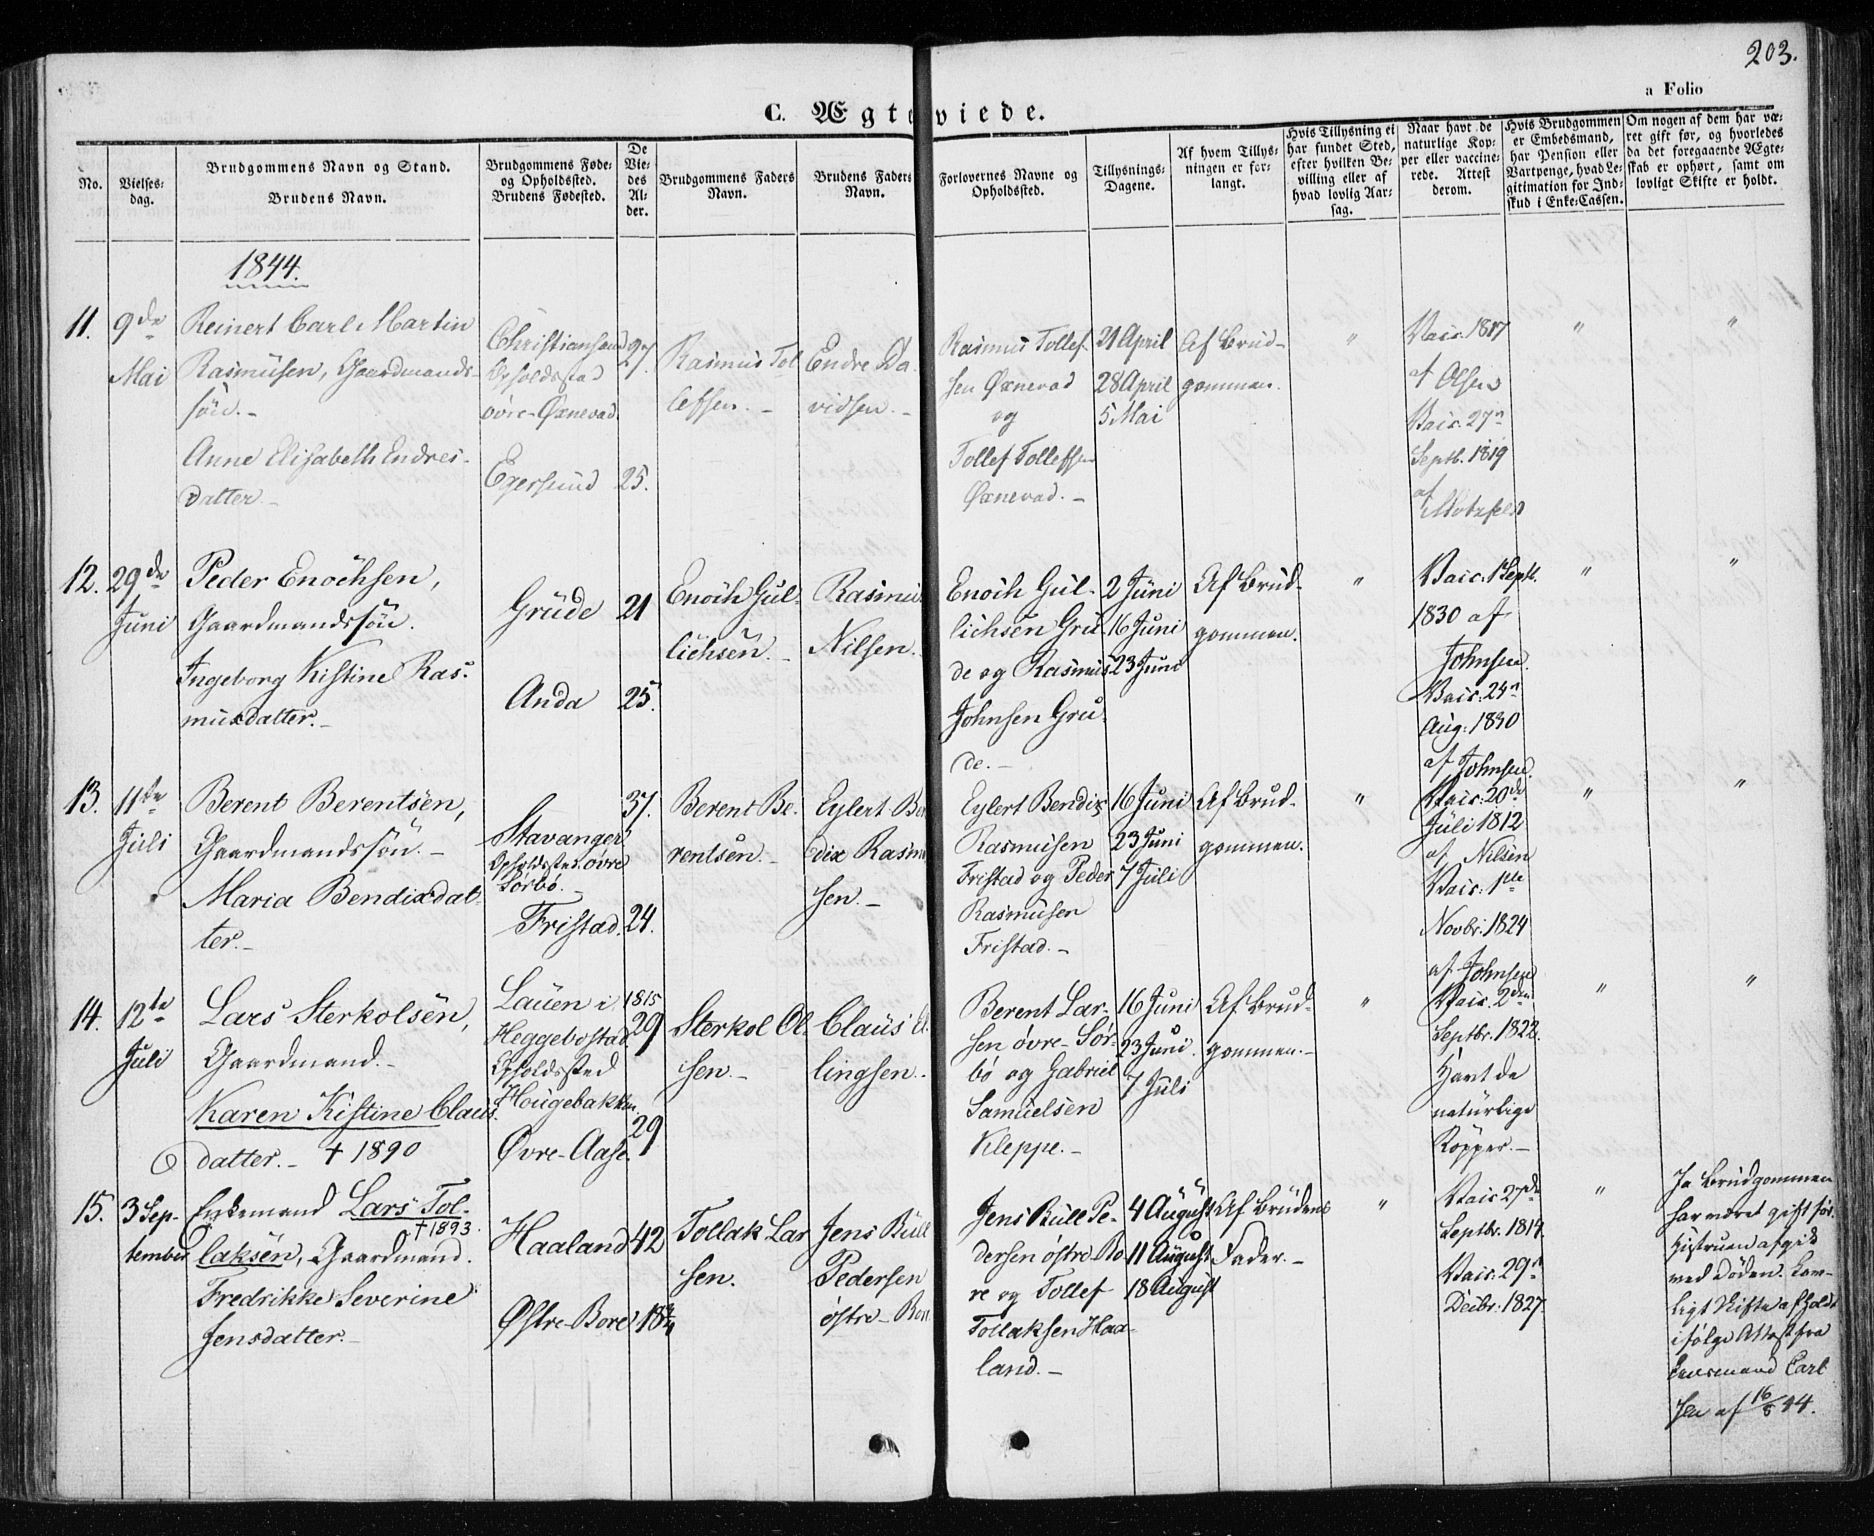 203.
a Folio
C. Ægteviede.
No.
Vielses-
dag.
Brudgommens Navn og Stand.
Brudens Navn.
Brudgommens Føde-
og Opholdssted.
Brudens Fødested.
De
Vie-
des
Al-
der.
Brudgommens Faders
Navn.
Brudens Faders
Navn.
Forlovernes Navne og
Opholdssted.
Tillysnings-
Dagene.
Af hvem Tillys-
ningen er for-
langt.
Hvis Tillysning ei
har fundet Sted,
efter hvilken Be-
villing eller af
hvad lovlig Aar-
sag.
Naar havt de
naturlige Kop-
per eller vaccine-
rede. Attest
derom.
Hvis Brudgommen
er Embedsmand,
har Pension eller
Vartpenge, hvad Le-
gitimation for Ind-
skud i Enke-Cassen.
Om nogen af dem har væ-
ret gift før, og hvorledes
da det foregaaende Ægte-
skab er ophørt, samt om
lovligt Skifte er holdt.
1844.
11.
9de
Mai
Reinert Carl Martin
Rasmusen, Gaardmands-
søn.-
Anne Elisabeth Endres-
datter.-
Christiansand
Opholdssted
øvre-Øxnevad
Egersund
27.
25.
Rasmus Tol
lefsen.-
Endre Da
vidsen.-
Rasmus Tollef-
sen Øxnevad
og
Tollef Tollefsen
Øxnevad.-
21 April
28 April
5 Mai
Af Brud-
gommen.
"
Vaic. 1817
af Olsen
Vaic. 27n
Septb. 1819
af
"
"
12.
29de
Juni
Peder Enochsen,
Gaardmandssøn.
Ingeborg Kistine Ras-
musdatter.-
Grude
Anda
21
25.
Enoch Gul-
lichsen.-
Rasmus
Nilsen.
Enoch Gul-
lichsen Gru-
de og Rasmus
Johnsen Gru-
de.-
2 Juni
16 Juni
23 Juni
Af Brud-
gommen.
"
Vaic. 1 Septb.
1830 af
Johnsen.
Vaic: 24n
Aug: 1830
af Johnsen.
"
"
13.
11te
Juli
Berent Berentsen,
Gaardmandssøn.-
Maria Bendixdat-
ter.-
Stavanger
Opholdssted øvre
Sørbø.-
Fristad.
37.
24.
Berent Be-
rentsen.-
Eylert Ben
dix Rasmu
sen.-
Eylert Bendix
Rasmusen
Fristad og Peder
Rasmusen
Fristad.-
16 Juni
23 Juni
7 Juli
Af Brud-
gommen.
"
Vaic: 20de
Juli 1812
af Nilsen
Vaic: 1ste
Novbr. 1824
af Johnsen
"
"
14.
12te
Juli
Lars Sterkolsen,
Gaardmand.-
Karen Kistine Claus
datter.- † 1890
Lauen i
Heggebostad
Opholdssted
Hougebakken
Øvre-Aase.
1815
29
29
Sterkol Ol-
sen.-
Claus El-
lingsen.-
Berent Lar-
sen øvre-Sør-
bø og Gabriel
Samuelsen
Kleppe.-
16 Juni
23 Juni.
7 Juli
Af Brud-
gommen.-
"
Vaic. 2den
Septbr. 1822.
Havt de
naturlige
Kopper.-
"
"
15.
3 Sep-
tember
Enkemand Lars Tol-
† 1893.
laksen, Gaardmand.
Fredrikke Severine
Jensdatter.-
Haaland
Østre-Bore
42
18
Tollak Lar
sen.
Jens Bull
Pedersen
østre-Bore
Jens Bull Pe-
dersen østre Bo-
re og Tollef
Tollaksen Haa-
land.-
4 August
11 August
18 August
Af Brudens
Fader.-
"
Vaic 27de
Septbr. 1814.
Vaic. 29n
Decbr. 1827.
"
Ja Brudgommen
har været gift før.
Hustruen afgik
ved Døden. Lov-
ligt Skifte afholdt
ifølge Attest fra
Lensmand Carl
sen af 16/8 44.